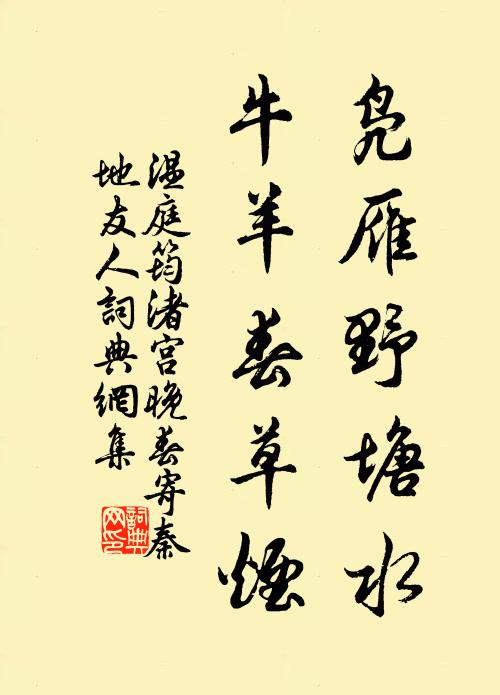 鳧雁野塘水
牛羊春草煙
溫庭筠渚宮晚春寄秦
地友人詞典網集
詞典
网印